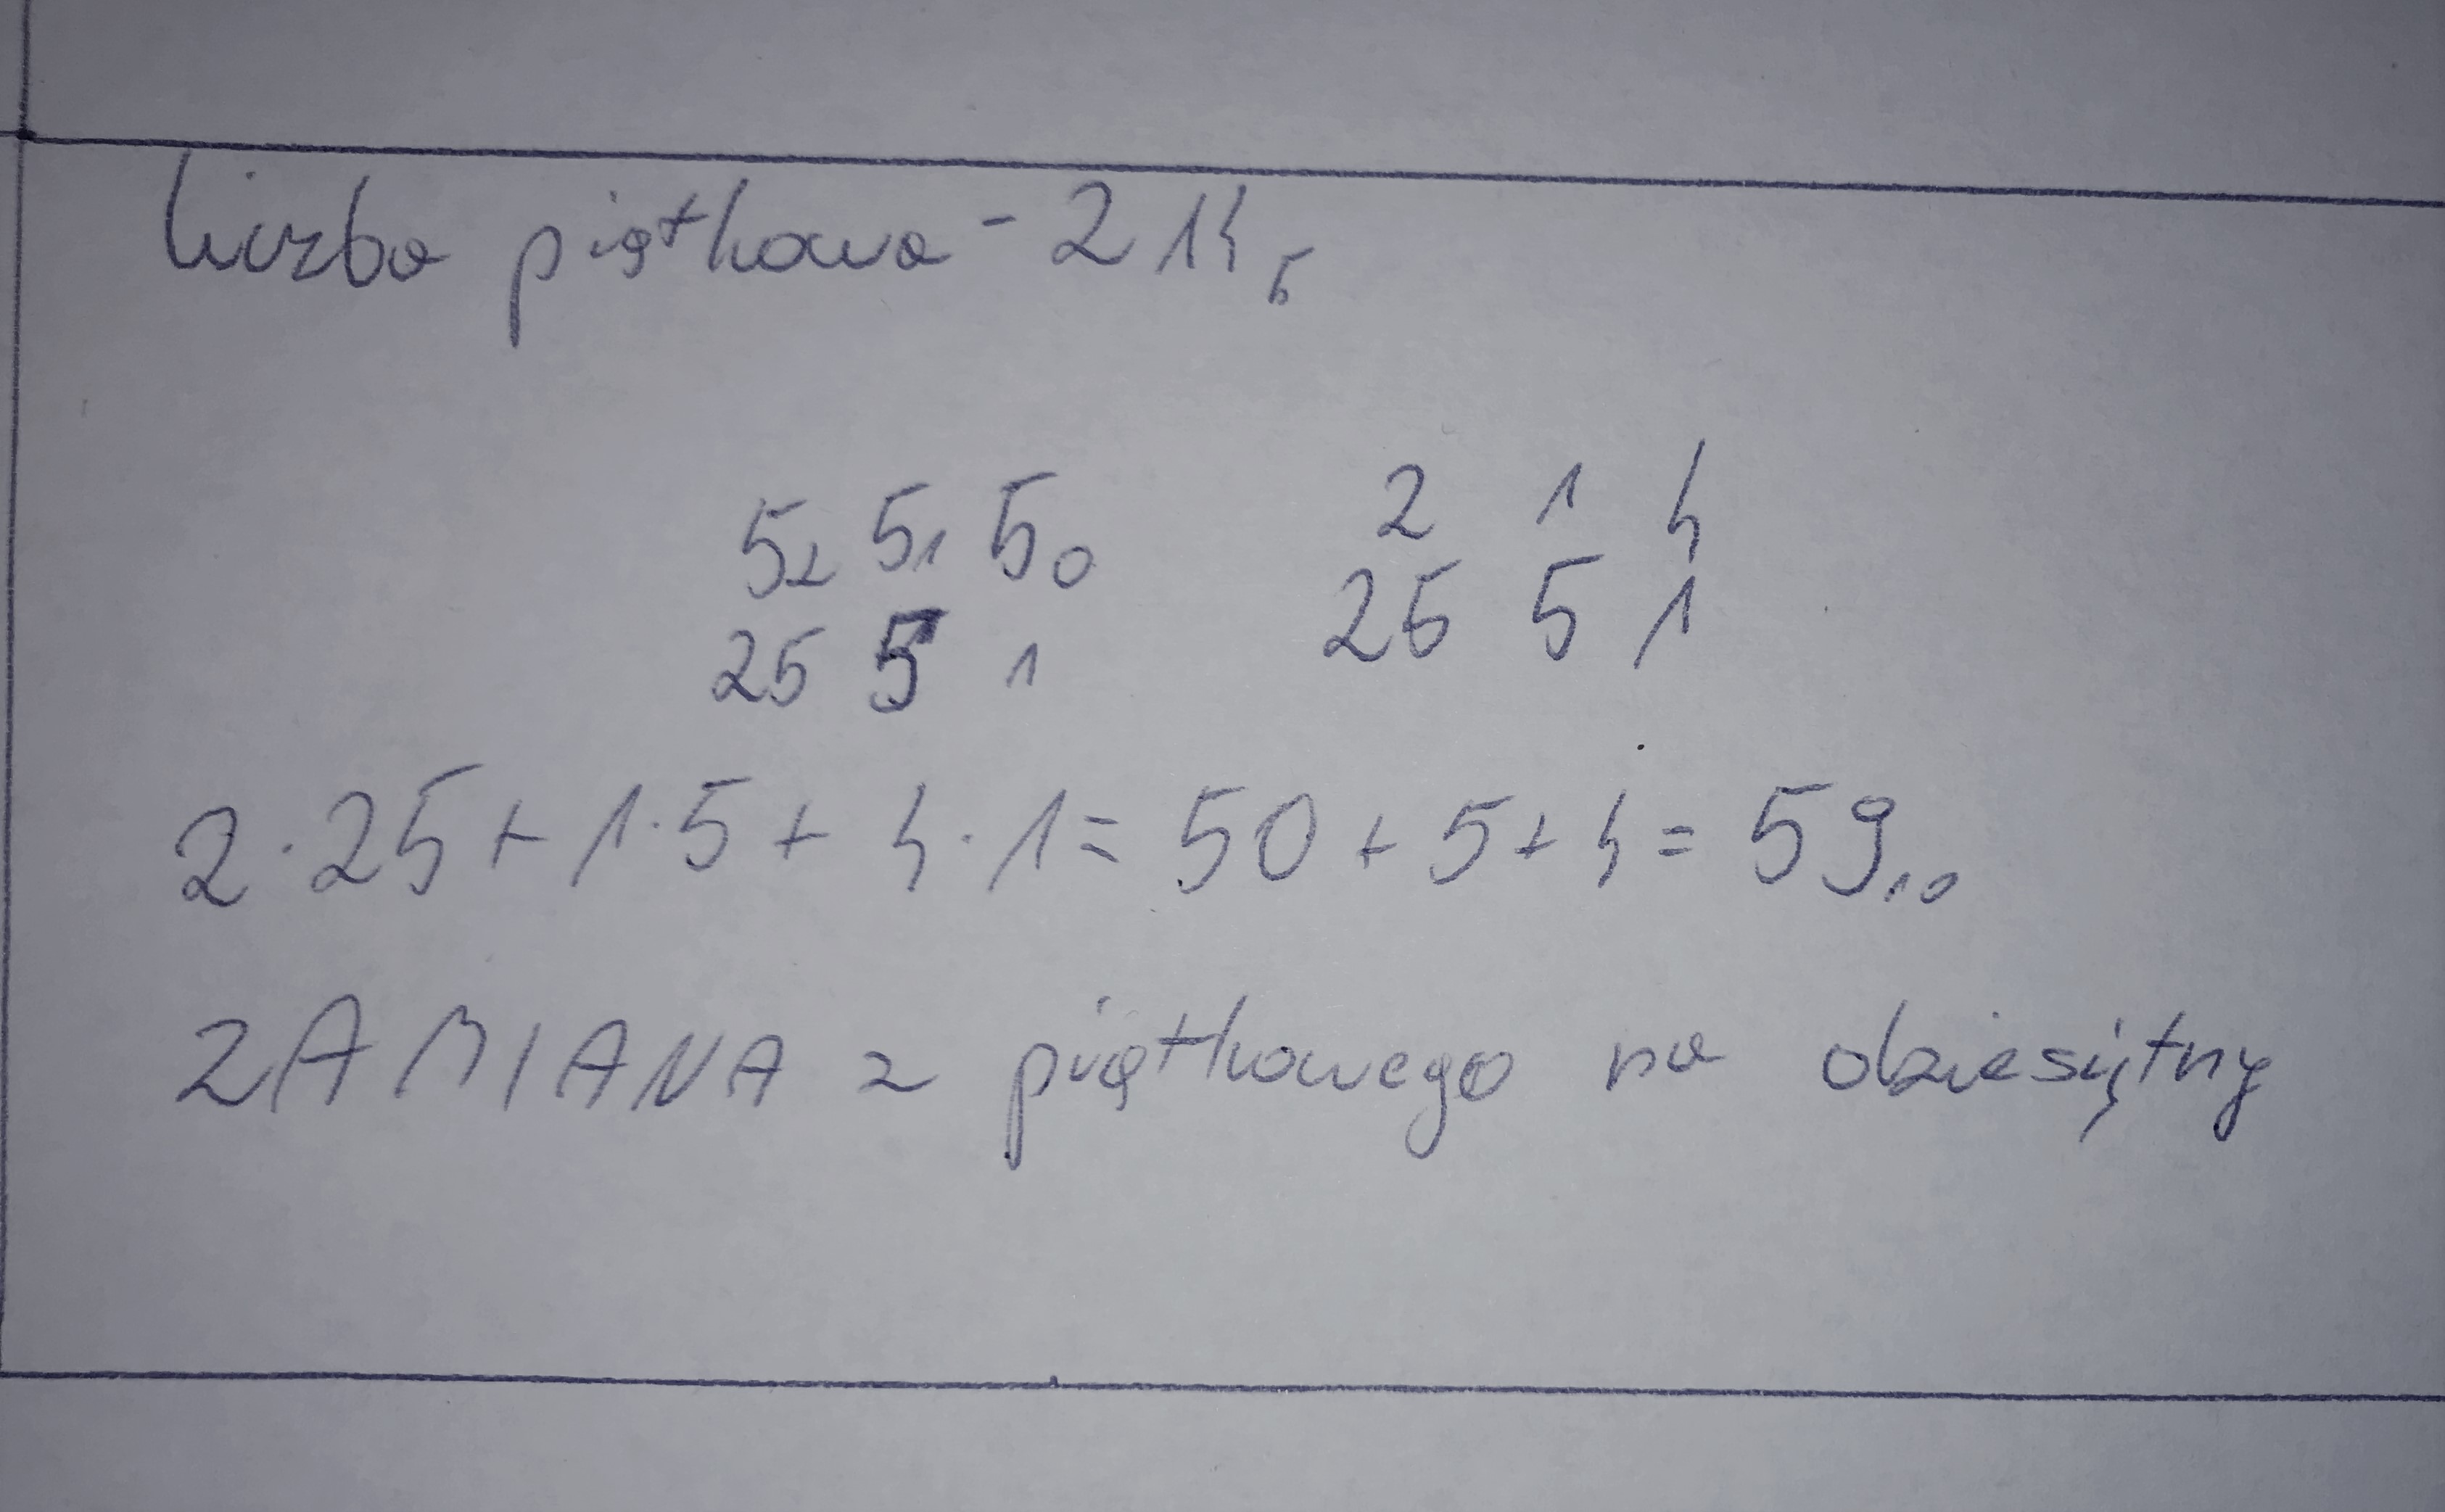 liczba piątkowa - 214₅
5₂ 5₁ 5₀ 2 1 4
25 5 1 25 5 1
2·25+1·5+4·1=50+5+4=59₁₀
ZAMIANA z piątkowego na dziesiętny